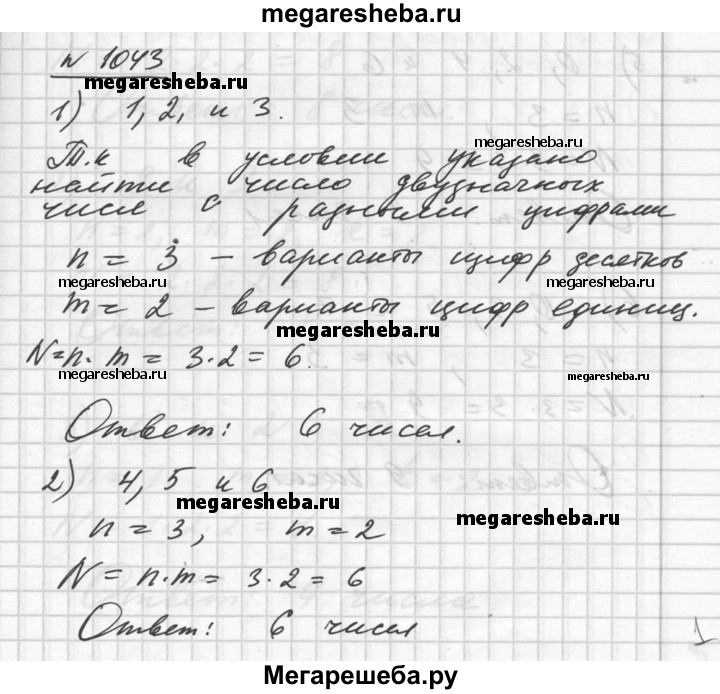 megaresheba.ru
№ 1043
megaresheba.ru
1) 1, 2, и 3.
megaresheba.ru
Т.к в условии указано
найти число двузначных
чисел с разными цифрами
n = 3 – варианты цифр десятков
megaresheba.ru
megaresheba.ru
m = 2 – варианты цифр единиц.
megaresheba.ru
N = n · m = 3 · 2 = 6.
megaresheba.ru
megaresheba.ru
Ответ: 6 чисел.
2) 4, 5 и 6
megaresheba.ru
megaresheba.ru
n = 3, m = 2
N = n · m = 3 · 2 = 6
Ответ: 6 чисел
1
Мегарешеба.ру